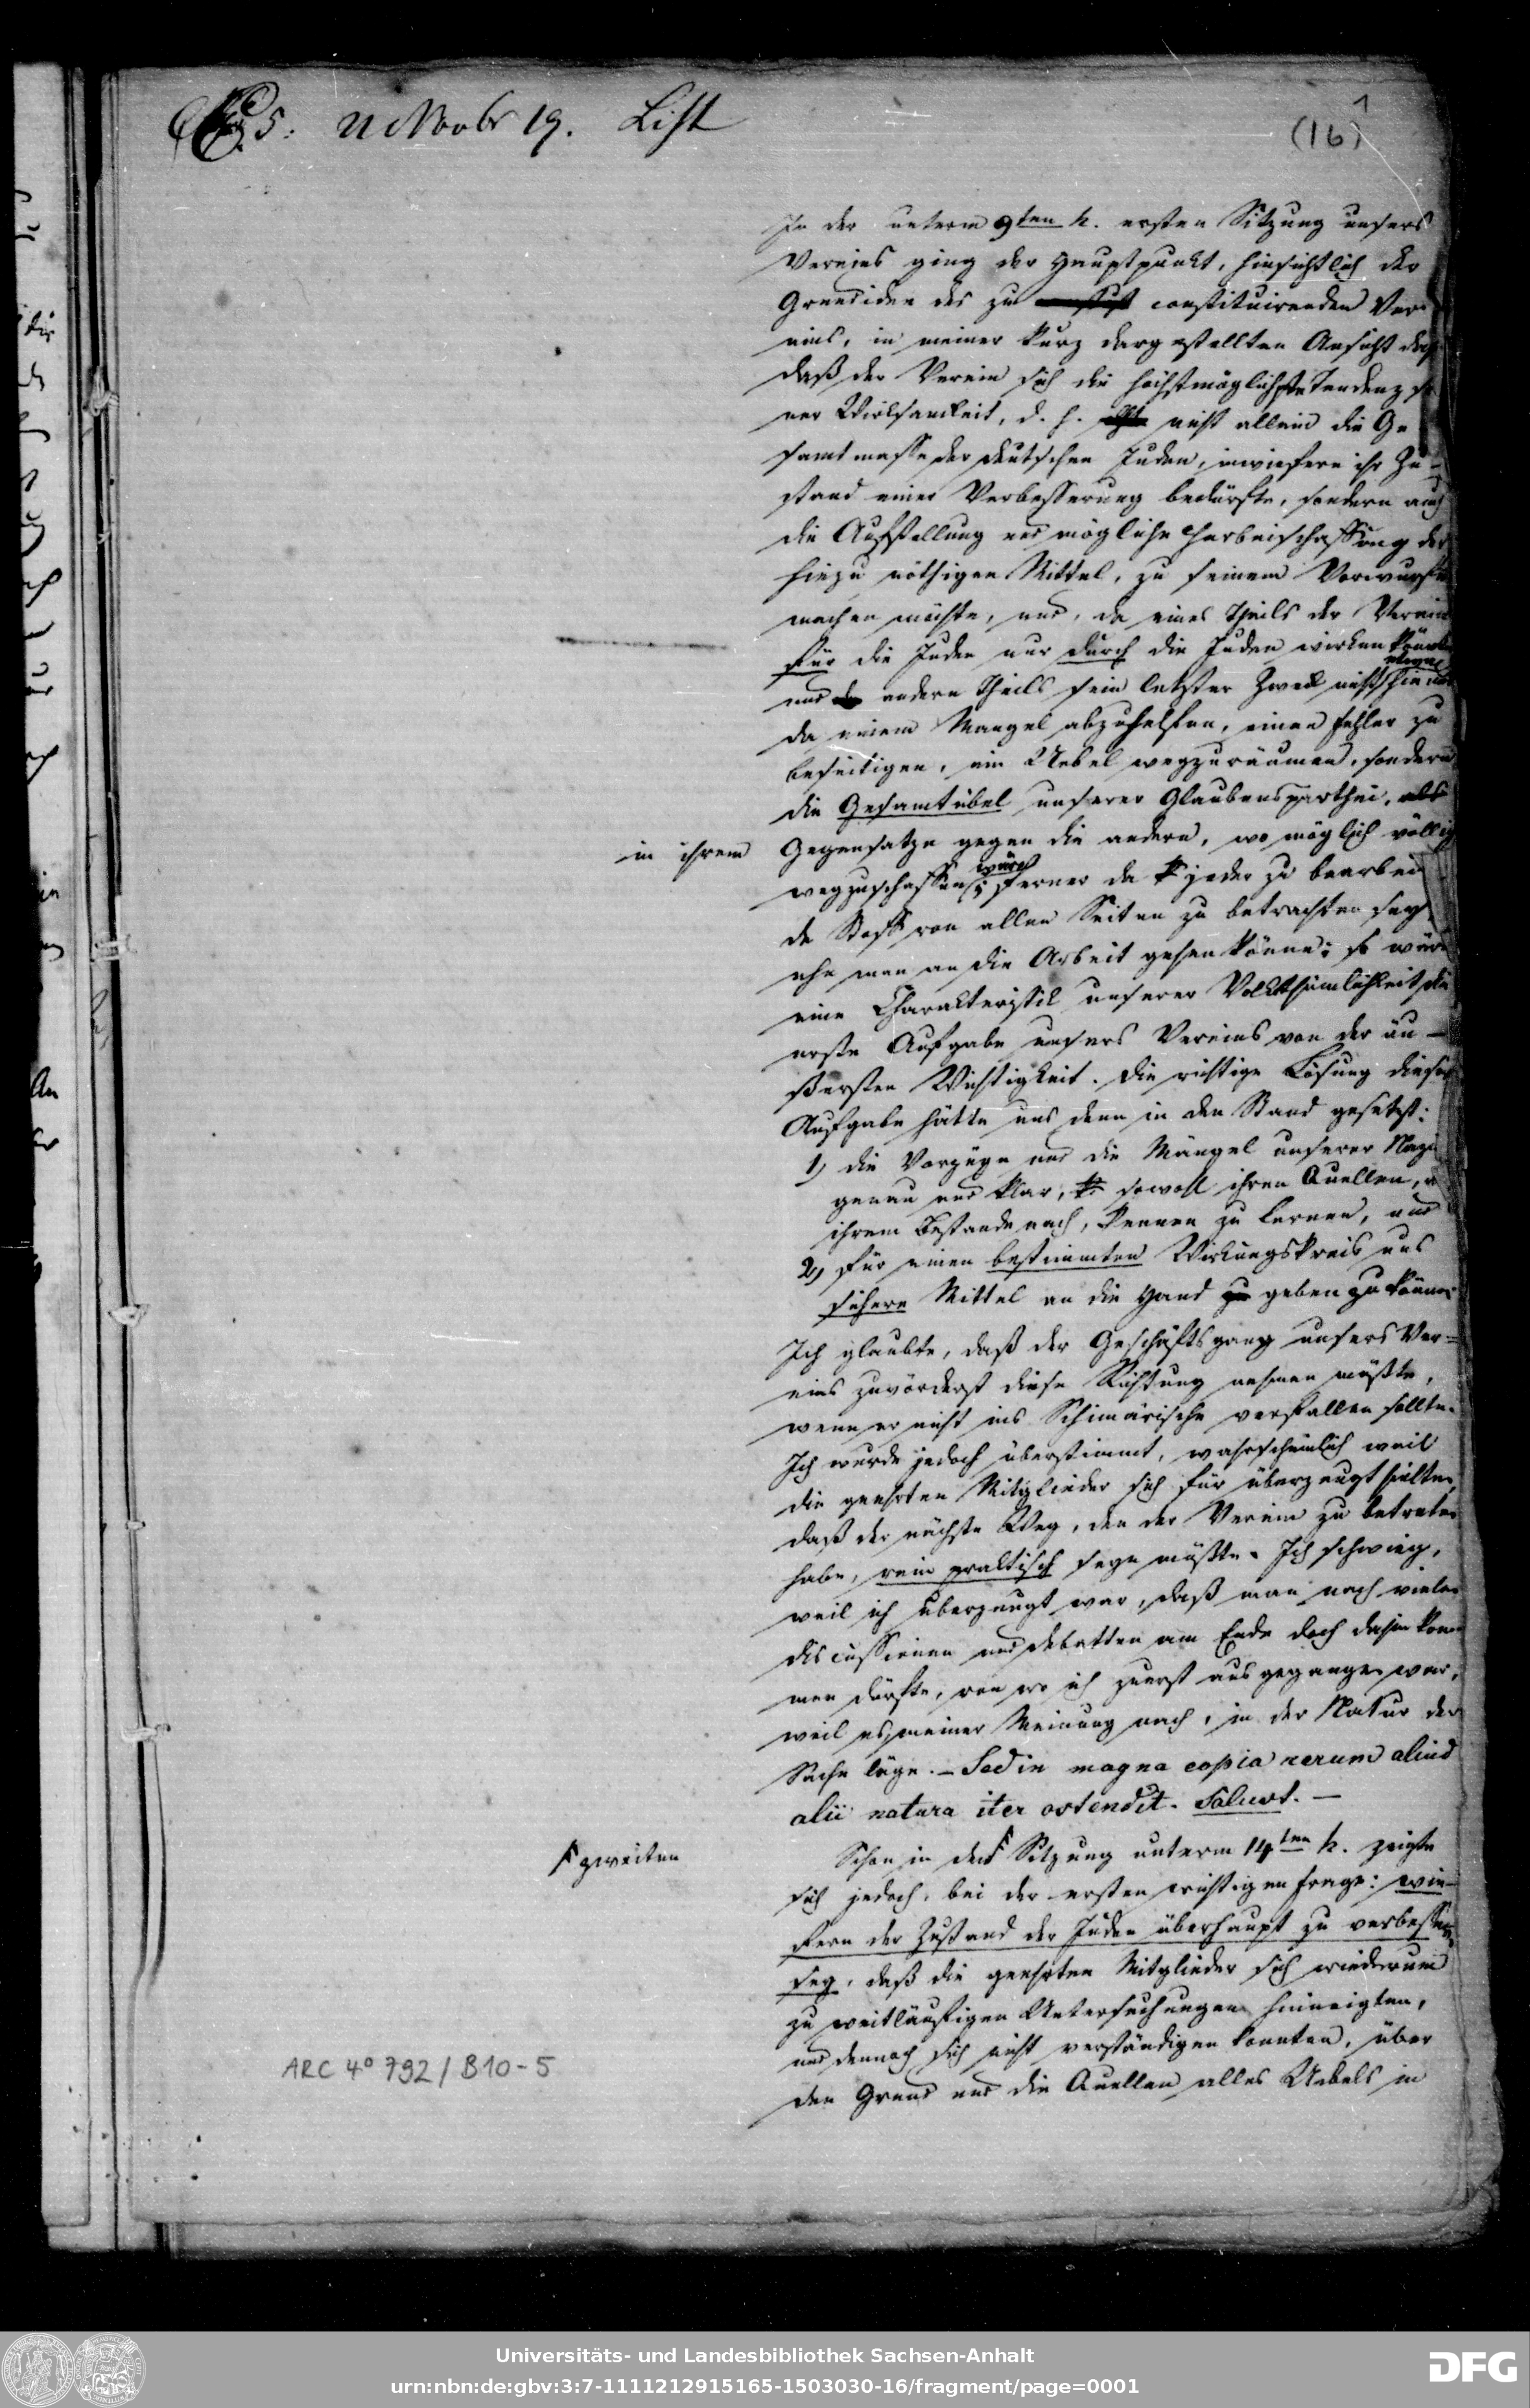 5. 21 Novbr 19. List
(16) 1
In der unterm 9ten h. ersten Sitzung unsers
Vereins ging der Hauptpunkt, hinsichtlich der
Grundidee des zu constituirenden Ver-
eins, in meiner kurz dargestellten Ansicht
daß der Verein sich die höchstmöglichste Tendenz
ner Wirksamkeit, d. h. nicht allein die Ge
samtmasse der deutschen Juden, inwiefern ihr Zu-
stand einer Verbesserung bedürfte, sondern auch
die Aufstellung und mögliche Herbeischaffung der
hiezu nöthigen Mittel, zu seinem Vorwurfe
machen müßte, und, da eines Theils der Verein
für die Juden nur durch die Juden wirken könnte
und andern Theils sein letzter Zweck nicht hie und
da einem Mangel abzuhelfen, einen Fehler zu
beseitigen, ein Uebel wegzuräumen, sondern
die Gesamtübel unserer Glaubensparthei,
in ihrem Gegensatze gegen die andern, wo möglich völlig
wegzuschaffen wäre; ferner da jeder zu bearbei
de Stoff von allen Seiten zu betrachten sey,
ehe man an die Arbeit gehen könne; so wäre
eine Charakteristik unserer Volksthümlichkeit die
erste Aufgabe unsers Vereins von der äu-
ßersten Wichtigkeit. Die richtige Lösung dieser
Aufgabe hätte uns denn in den Stand gesetzt:
1) die Vorzüge und die Mängel unserer Nazi
genau und klar, sowohl ihren Quellen,
ihrem Bestande nach, kennen zu lernen, und
2) für einen bestimmten Wirkungskreis uns
sichere Mittel an die Hand geben zu können
Ich glaubte, daß der Geschäftsgang unsers Ver=
eins zuvörderst diese Richtung nehmen müßte,
wenn er nicht ins Schimärische verfallen sollte.
Ich wurde jedoch überstimmt, wahrscheinlich weil
die geehrten Mitglieder sich für überzeugt hielten,
daß der nächste Weg, den der Verein zu betreten
habe, rein praktisch seyn müßte. Ich schwieg,
weil ich überzeugt war, daß man nach vielen
discussionen und debatten am Ende doch dahin kom
men dürfte, von wo ich zuerst ausgegangen war,
weil es, meiner Meinung nach, in der Natur der
Sache läge. – Sed in magna copia rerum aliud
alii natura iter ostendit. Salust. –
zweiten
Schon in der Sitzung unterm 14ten h. zeigte
sich jedoch, bei der ersten wichtigen Frage: wie-
fern der Zustand der Juden überhaupt zu verbessern
sey, daß die geehrten Mitglieder sich wiederum
zu weitläufigen Untersuchungen hinneigten,
und dennoch sich nicht verständigen konnten, über
den Grund und die Quellen alles Uebels in
ARC 4° 792 / B10-5
Universitäts- und Landesbibliothek Sachsen-Anhalt
urn:nbn:de:gbv:3:7-1111212915165-1503030-16/fragment/page=0001
DFG